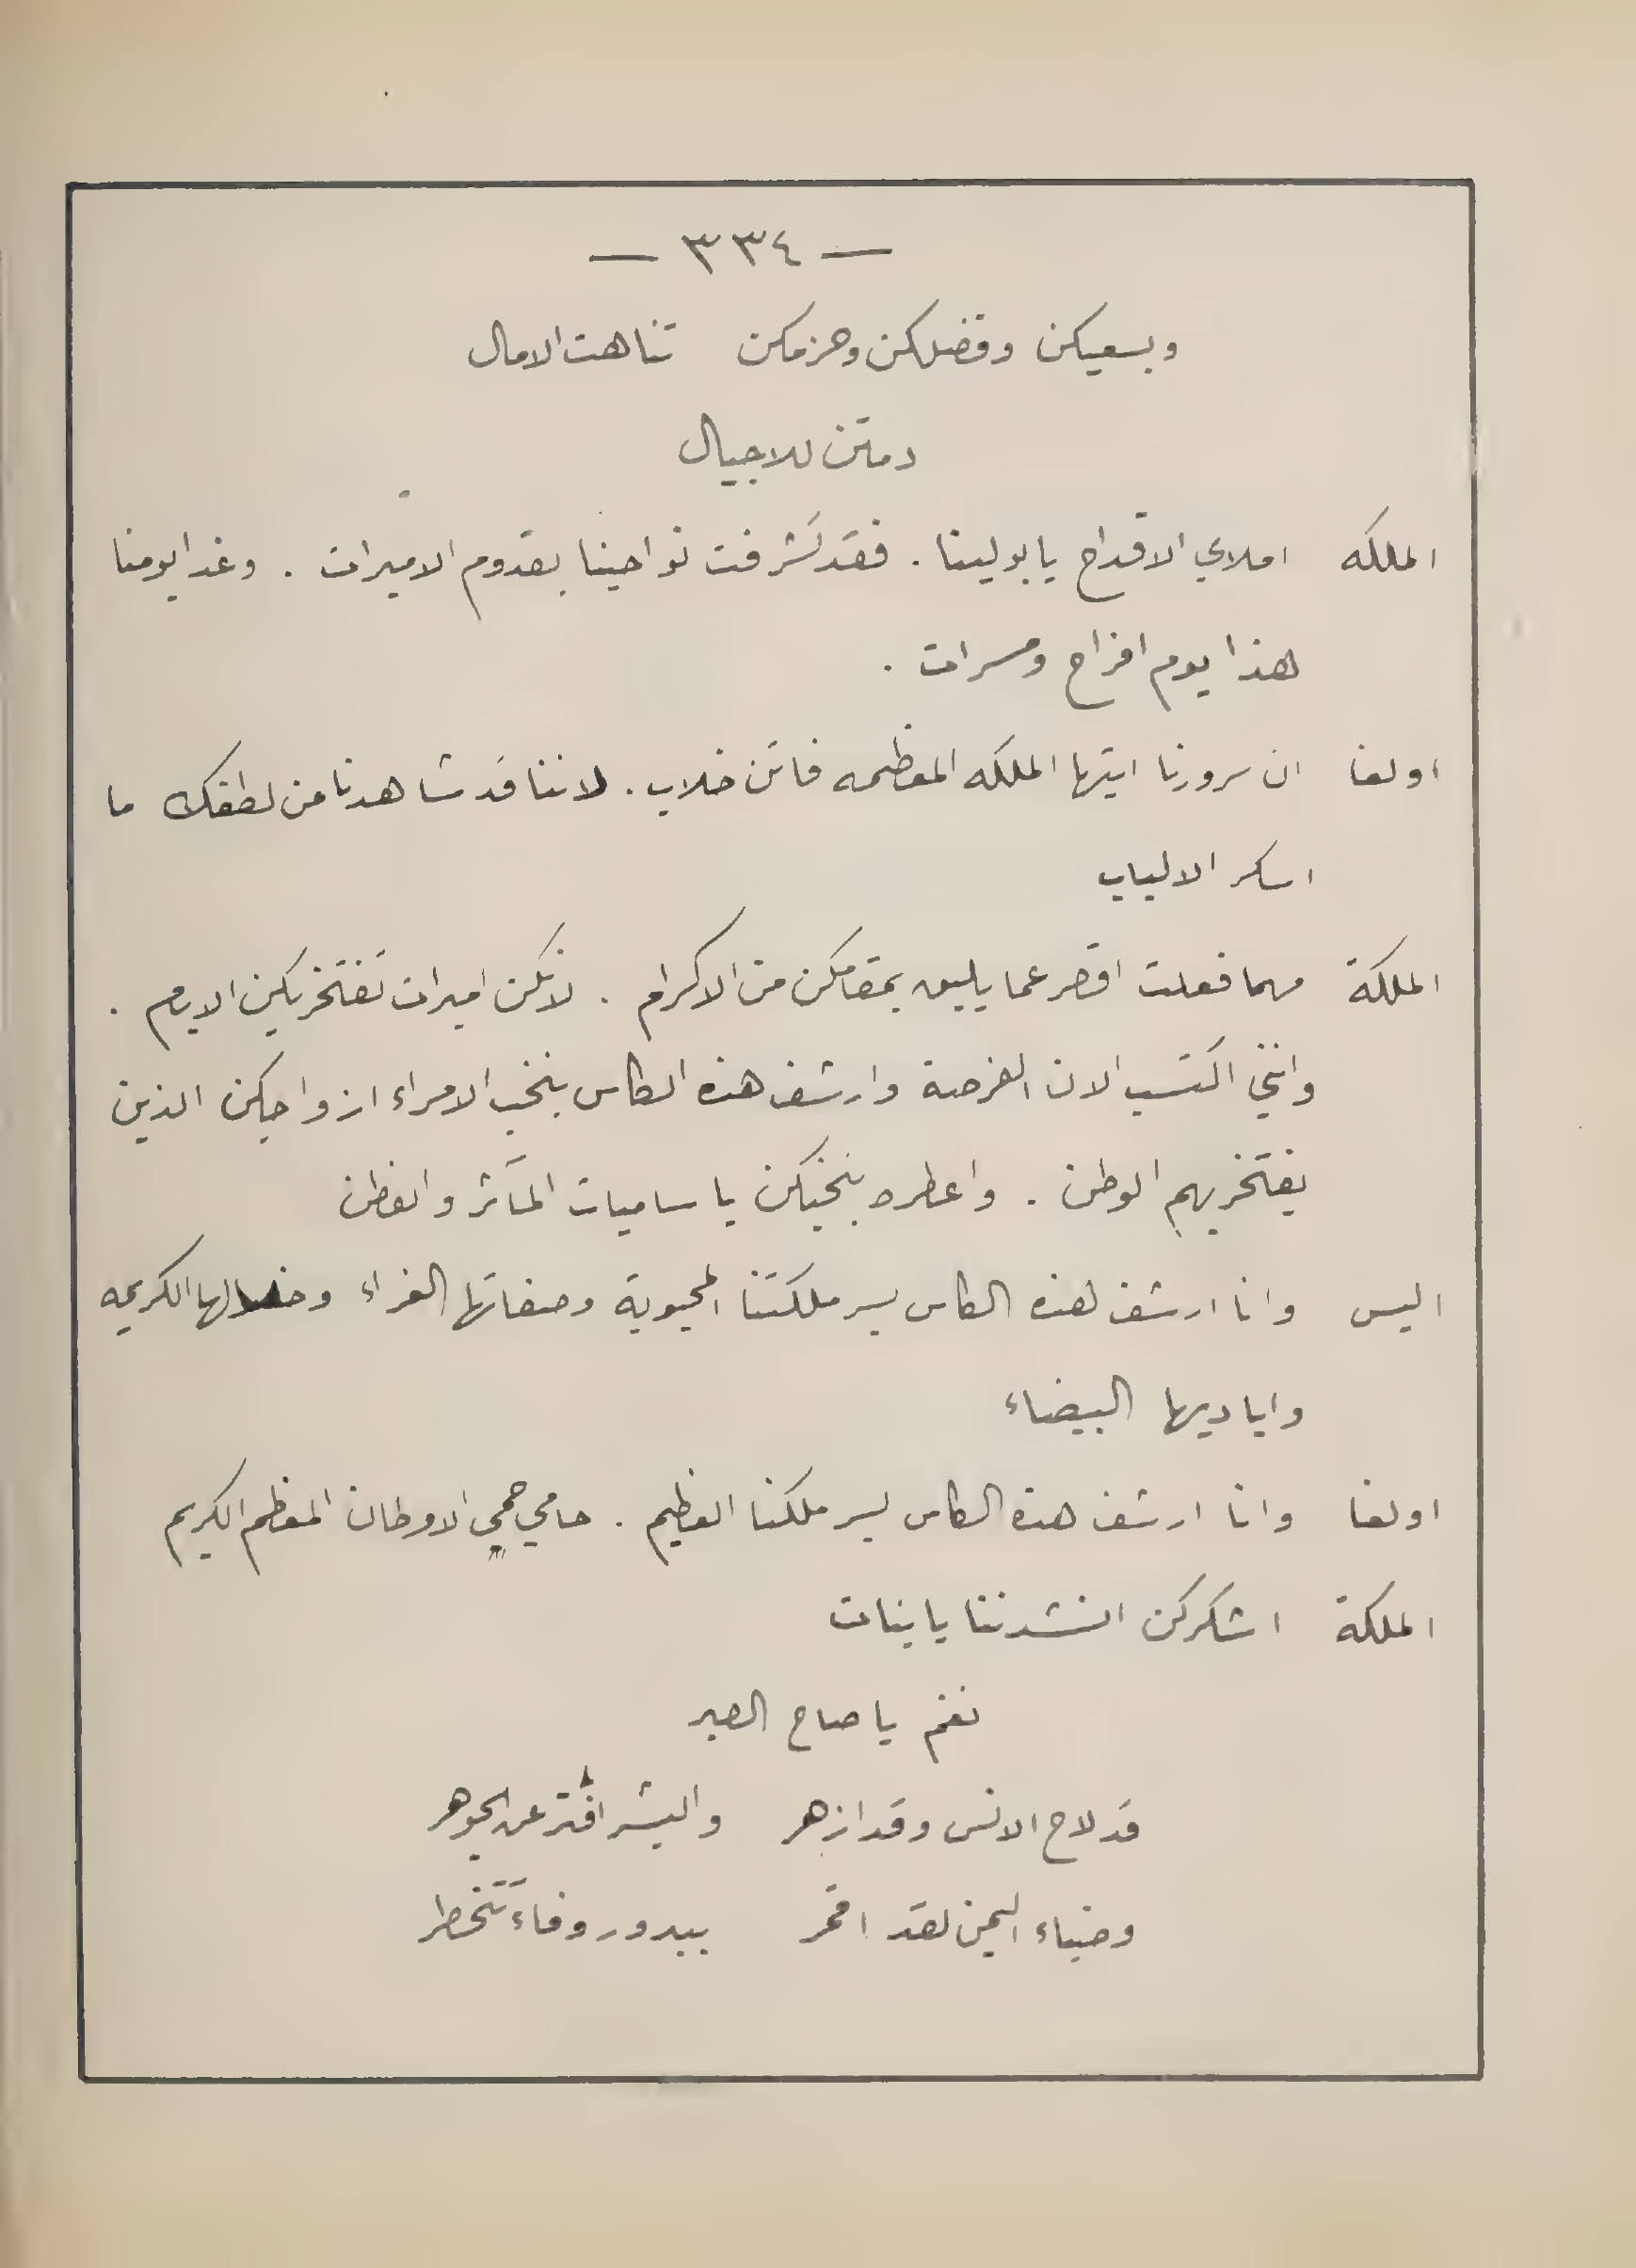 — ٣٣٤ —
وبسعيكن وفضلكن وحزمكن تناهت الامال
دمتن للاجيال
الملكه املاي الاقداح يابولينا . فقد تشرفت نواحينا بقدوم الاميرات . وغدا يومنا
هذا يوم افراح ومسرات .
اولغا ان سرورنا ايتها الملكه المعظمه فاتن خلاب . لاننا قد شاهدنا من لطفك ما
اسكر الالباب
الملكة مهما فعلت اقصر عما يليق بمقامكن من الاكرام . لانكن اميرات تفتخر بكين الايام .
وانني اكتسب الان الفرصة وارشف هذه الكاس بنخب الامراء ازواجكن الذين
يفتخر بهم الوطن . واعطره بنخبكن يا ساميات المآثر والفطن
اليس وانا ارشف هذه الكاس بسر ملكتنا المحبوبة وصفاتها الغراء وخصالها الكريمه
واياديها البيضاء
اولغا وانا ارشف هذه الكاس بسر ملكنا العظيم . حامي حمى الاوطان المعظم الكريم
الملكة اشكركن انشدننا يابنات
نغم يا صاح الصبر
قد لاح الانس وقد ازهر والبشر افتر عن الجوهر
وضياء اليمن لقد اقمر ببدور وفاء تتخطر